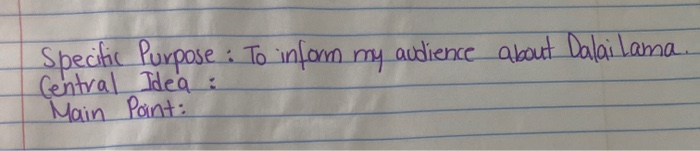 Specific Purpose : To inform my audience about Dalai Lama.
Central Idea :
Main Point: